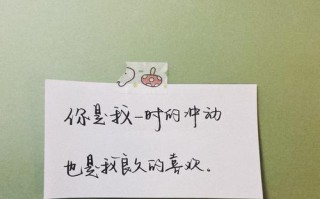 你是我一时的冲动
也是我良久的喜欢。